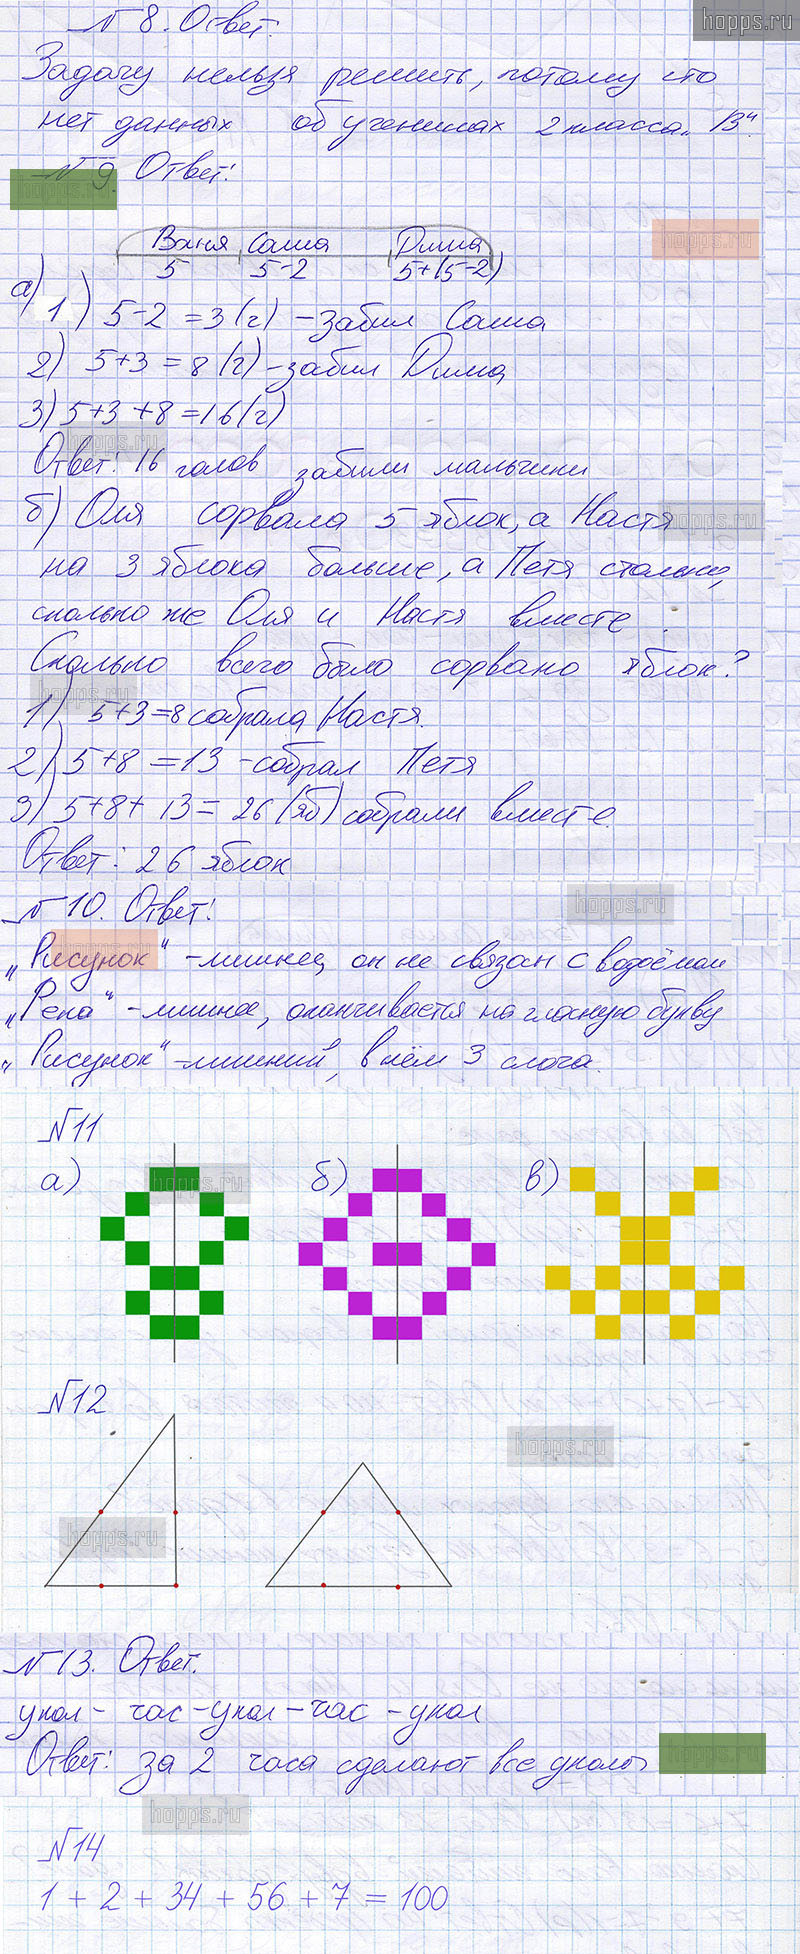 hopps.ru
№ 8. Ответ.
Задачу нельзя решить, потому что
нет данных об учениках 2 класса „В“.
№ 9. Ответ:
hopps.ru
hopps.ru
Ваня Саша Дима
5 5-2 5+(5-2)
а) 1) 5-2=3(г) - забил Саша
2) 5+3=8(г) - забил Дима
3) 5+3+8=16(г)
hopps.ru
Ответ: 16 голов забили мальчики
б) Оля сорвала 5 яблок, а Настя
hopps.ru
на 3 яблока больше, а Петя столько,
сколько же Оля и Настя вместе.
Сколько всего было сорвано яблок?
hopps.ru
1) 5+3=8 собрала Настя.
2) 5+8=13 - собрал Петя
3) 5+8+13=26(яб) собрали вместе.
Ответ: 26 яблок
hopps.ru
№ 10. Ответ:
hopps.ru
„Рисунок“ - лишнец, он не связан с водоёмом
„Репа“ - лишнее, оканчивается на гласную букву
„Рисунок“ - лишний, в нём 3 слога.
№11
а) б) в)
hopps.ru
№12
hopps.ru
hopps.ru
№ 13. Ответ.
укол - час - укол - час - укол
Ответ: за 2 часа сделают все уколы
hopps.ru
hopps.ru
№14
1 + 2 + 34 + 56 + 7 = 100